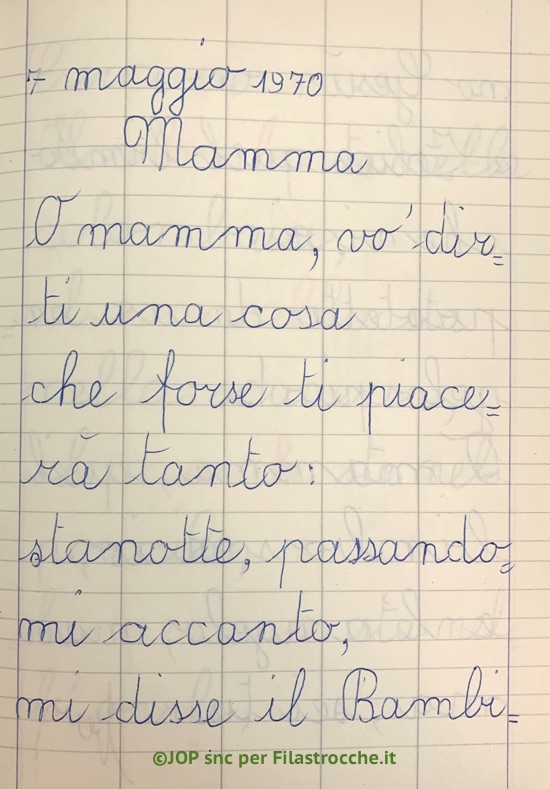 7 maggio 1970
Mamma
O mamma, vo' dir=
ti una cosa
che forse ti piace=
rà tanto:
stanotte, passando=
mi accanto,
mi disse il Bambi=
©JOP snc per Filastrocche.it